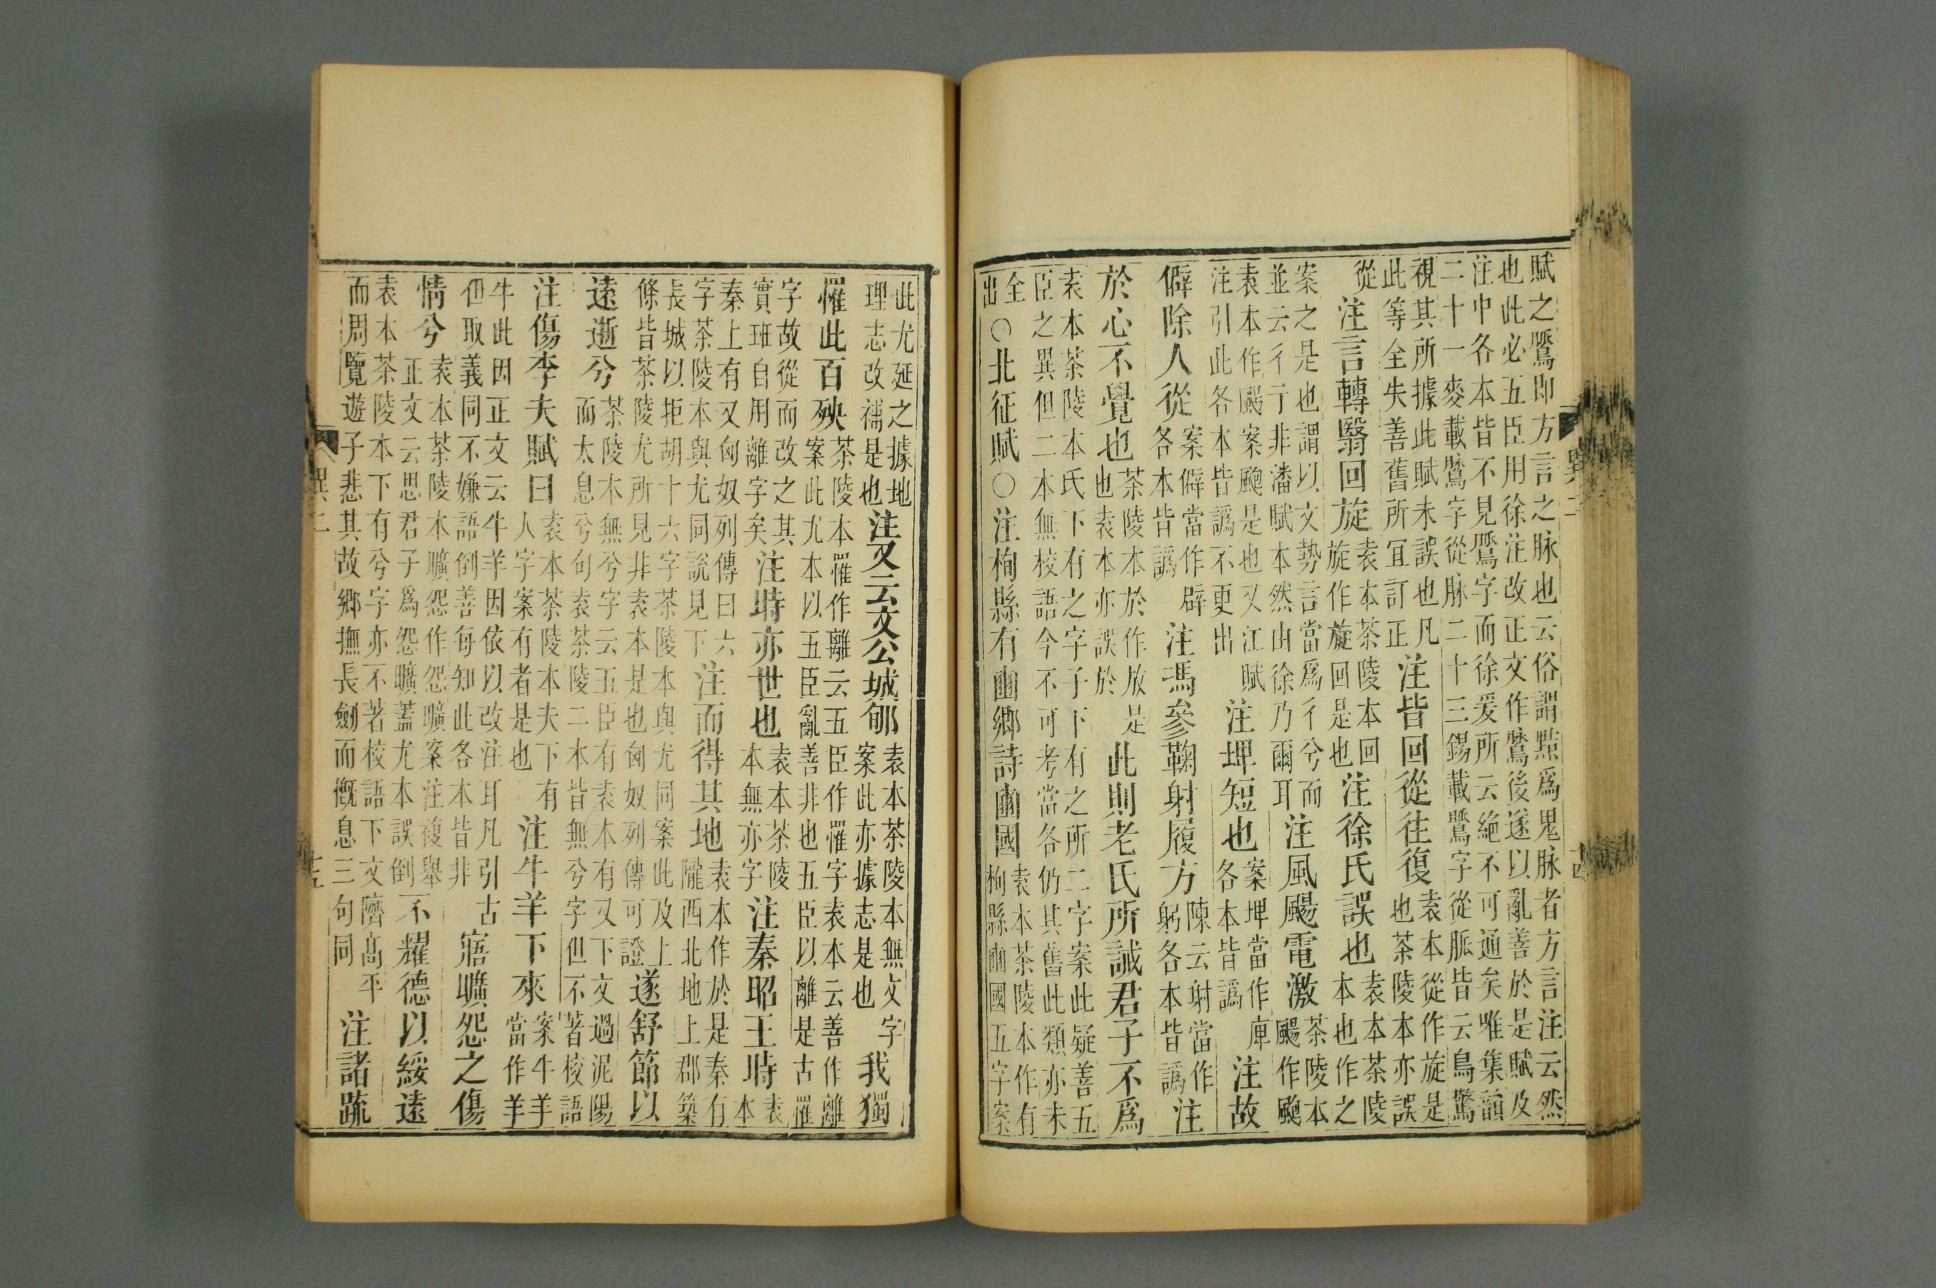 賦之鷖即方言之脉也云俗謂黠爲鬼脉者方言注云然
也此必五臣用徐注改正文作鷖後遂以亂善於是賦及
注中各本皆不見鷖字而徐爰所云絶不可通矣唯集韻
二十一麥載鷖字從脉二十三錫載鷖字從脈皆云鳥驚
視其所據此賦未誤也凡此等全失善舊所宜訂正注皆回從往復袁本從作旋是也茶陵本亦誤
從注言轉翳回旋袁本茶陵本回旋作㫌回是也注徐氏誤也袁本茶陵本也作之
案之是也謂以文勢言當爲彳兮而並云彳亍非潘賦本然由徐乃爾耳注風颺電激茶陵本颺作䬍
袁本作䬍案䬍是也又江賦注引此各本皆譌不更出注埤短也案埤當作庳各本皆譌注故
僻除人從案僻當作辟各本皆譌注馮參鞠射履方陳云射當作躬各本皆譌注
於心不覺也茶陵本於作放是也袁本亦誤於此則老氏所誡君子不爲
袁本茶陵本氏下有之字子下有之所二字案此疑善五
臣之異但二本無校語今不可考當各仍其舊此類亦未
全出○北征賦○注栒縣有豳鄉詩豳國袁本茶陵本作有栒縣豳國五字案
異二
十四
此尤延之據地理志改補是也注又云文公城郇袁本茶陵本無文字案此亦據志是也我獨
罹此百殃茶陵本罹作離云五臣作罹字袁本云善作離案此尤本以五臣亂善非也五臣以離是古罹
字故從而改之其實班自用離字矣注時亦世也袁本茶陵本無亦字注秦昭王時袁本
秦上有又匈奴列傳曰六字茶陵本與尤同說見下注而得其地袁本作於是秦有隴西北地上郡築
長城以拒胡十六字茶陵本與尤同案此及上條皆茶陵尤所見非袁本是也匈奴列傳可證遂舒節以
遠逝兮茶陵本無兮字云五臣有袁本有又下文過泥陽而太息兮句袁茶陵二本皆無兮字但不著校語
注傷李夫賦曰袁本茶陵本夫下有人字案有者是也注牛羊下來案牛羊當作羊
牛此因正文云牛羊因依以改注耳凡引古但取義同不嫌語倒善每知此各本皆非寤曠怨之傷
情兮袁本茶陵本曠怨作怨曠案注複舉正文云思君子爲怨曠蓋尤本誤倒不耀德以綏遠
袁本茶陵本下有兮字亦不著校語下文隮高平而周覽遊子悲其故鄉撫長劒而慨息三句同注諸䟽
異二
十五